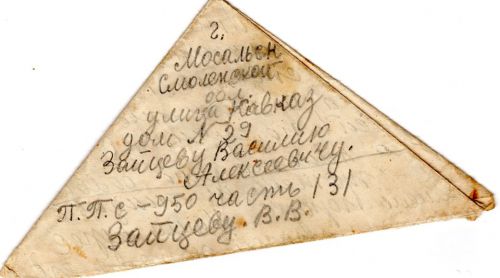 г.
Мосальск
Смоленской
обл.
улица Кавказ
дом N 29
Зайцеву Василию
Алексеевичу.
П.П.с-950 часть 131
Зайцеву. В.В.